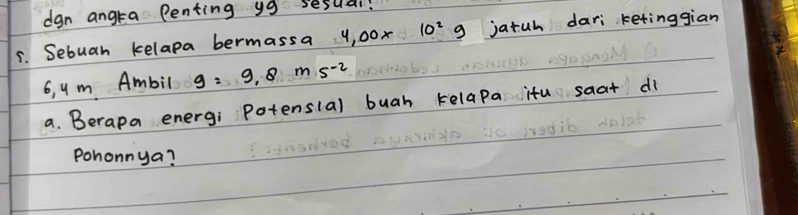 dgn angka Penting yg sesuai!
5. Sebuah kelapa bermassa 4,00x 10² g jatuh dari ketinggian
6,4 m. Ambil g = 9,8 m s⁻²
a. Berapa energi Potensial buah kelapa itu saat di
Pohonnya?